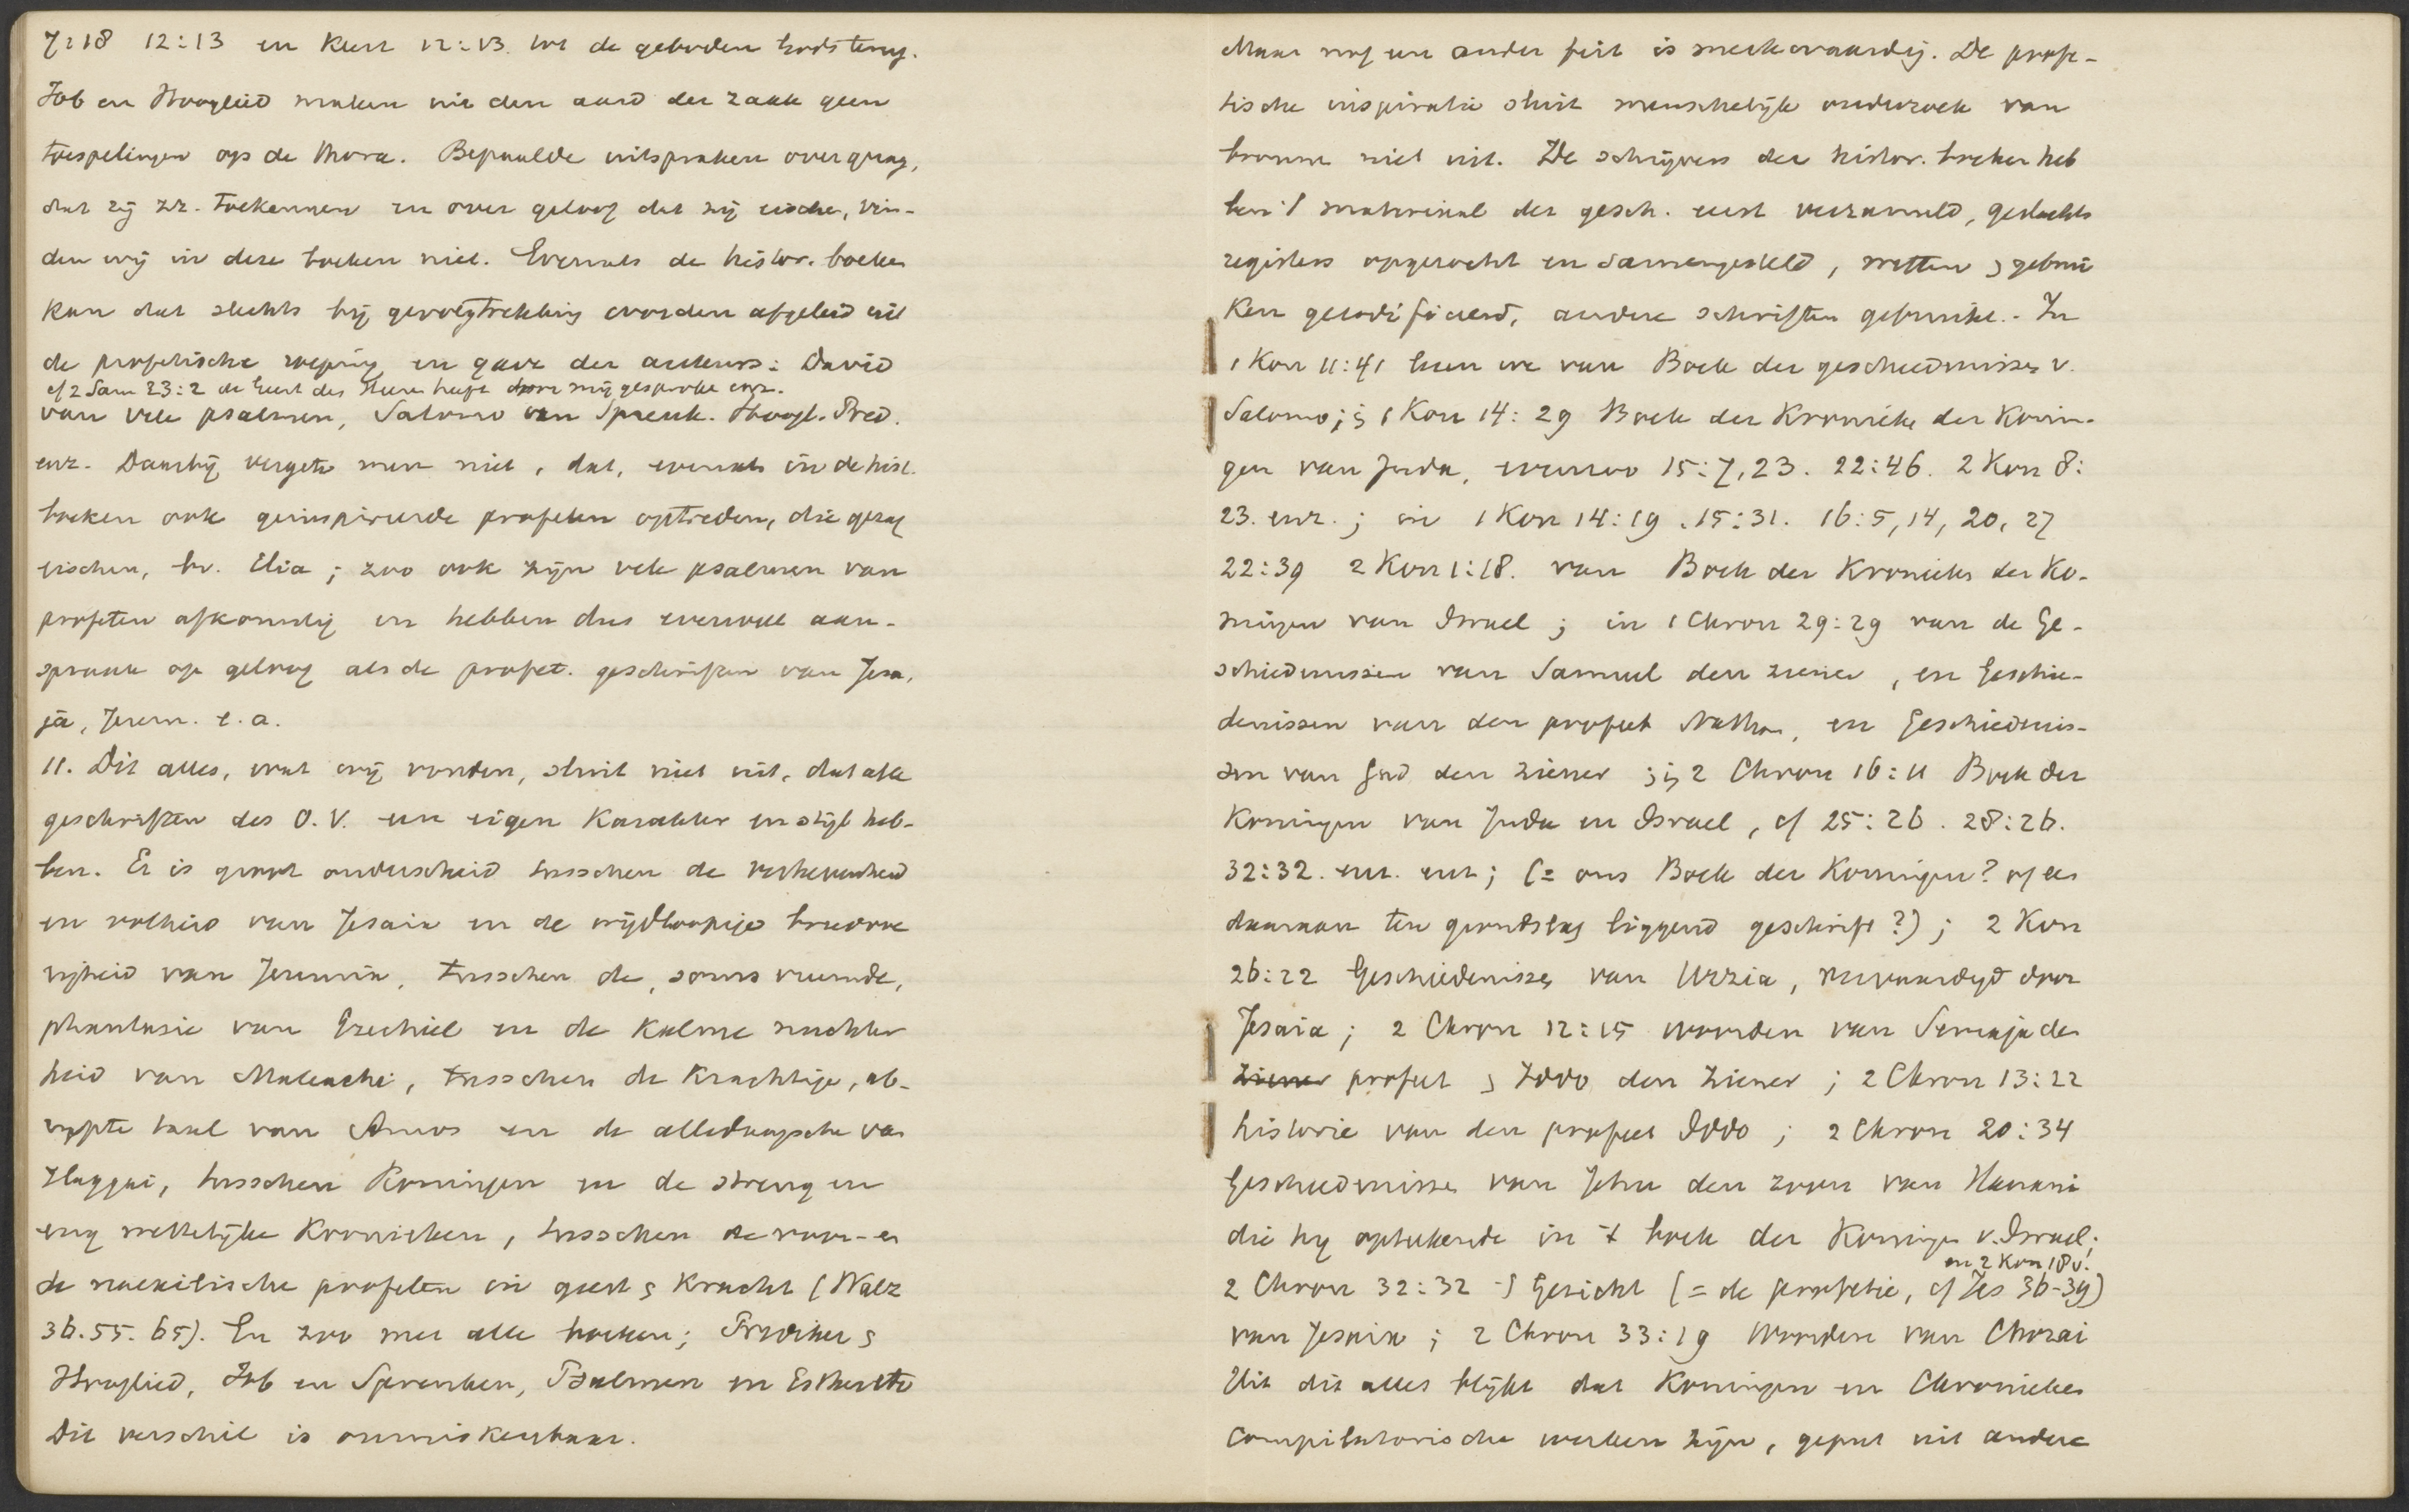 7:18 12:13 en keert 12:13. tot de geboden Gods terug.
Job en Hooglied maken uit den aard der zaak geen
toespelingen op de thora. Bepaalde uitspraken over gezag,
dat zij zz. toekennen en over geloof dat zij eischen, vin-
den wij in deze boeken niet. Evenals de histor. boeken
kan dat slechts bij gevolgtrekking worden afgeleid uit
de profetische roeping en gave der auteurs: David
cf 2 Sam 23:2 de Geest des Heeren heeft door mij gesproken enz.
van vele psalmen, Salomo van Spreuk. Hoogl. Pred.
enz. Daarbij vergete men niet, dat, evenals in de hist.
boeken ook geinspireerde profeten optreden, die gezag
eischen, bv. Elia; zoo ook zijn vele psalmen van
profeten afkomstig en hebben dus evenveel aan-
spraak op geloof als de profet. geschriften van Jesa-
ja, Jerem. e.a.
11. Dit alles, wat wij vonden, sluit niet uit, dat alle
geschriften des O.V. een eigen karakter en stijl heb-
ben. Er is groot onderscheid tusschen de verhevenheid
en volheid van Jesaia en de wijdloopige breedvoe
righeid van Jeremia, tusschen de, soms vreemde,
phantasie van Ezechiel en de kalme nuchter
heid van Maleachi, tusschen de krachtige, ab-
rupte taal van Amos en de alledaagsche van
Haggai, tusschen Koningen en de streng en
eng wettelijke Kronieken, tusschen de voor- en
de naexilische profeten in geest & kracht (Walz
36.55.65). En zoo met alle boeken; Prediker &
Hooglied, Job en Spreuken, Psalmen en Esther etc
Dit verschil is onmiskenbaar.
Maar nog een ander feit is merkwaardig. De profe-
tische inspiratie sluit menschelijk onderzoek van
bronnen niet uit. De schrijvers der histor. boeken heb
ben 't materiaal der gesch. eerst verzameld, geslachts
registers opgezocht en samengesteld, wetten & gebrui
ken gecodificeerd, andere schriften gebruikt. - In
1 Kon 11:41 lezen we van Boek der geschiedenissen v.
Salomo; in 1 Kon 14:29 Boek der Kronieken der Konin-
gen van Juda, evenzoo 15:7,23. 22:46. 2 Kon 8:
23. enz.; in 1 Kon 14:19. 15:31. 16:5, 14, 20, 27
22:39 2 Kon 1:18. van Boek der Kronieken der Ko-
ningen van Israel; in 1 Chron 29:29 van de Ge-
schiedenissen van Samuel den ziener, en Geschie-
denissen van den profeet Nathan, en Geschiedenis-
sen van Gad den ziener; in 2 Chron 16:11 Boek der
Koningen van Juda en Israel, cf 25:26. 28:26.
32:32. enz. enz; (= ons Boek der Koningen? of een
daaraan ten grondslag liggend geschrift?); 2 Kon
26:22 Geschiedenissen van Uzzia, vervaardigd door
Jesaia; 2 Chron 12:15 woorden van Semaja den
ziener profeet & Iddo den ziener; 2 Chron 13:22
historie van den profeet Iddo; 2 Chron 20:34
Geschiedenissen van Jehu den zoon van Hanani
die hij opteekende in 't boek der Koningen v. Israel;
en 2 Kon 18v.
2 Chron 32:32 't Gezicht (= de profetie, cf Jes 36-39)
van Jesaia; 2 Chron 33:19 Woorden van Chozai
Uit dit alles blijkt dat Koningen en Chronieken
compilatorische werken zijn, geput uit andere